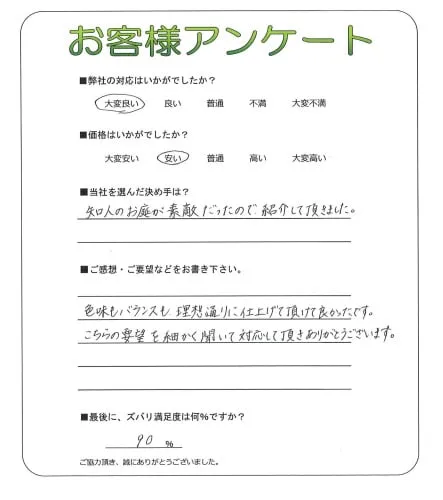 お客様アンケート
■弊社の対応はいかがでしたか？
大変良い 良い 普通 不満 大変不満
■価格はいかがでしたか？
大変安い 安い 普通 高い 大変高い
■当社を選んだ決め手は？
知人のお庭が素敵だったので紹介して頂きました。
■ご感想・ご要望などをお書き下さい。
色味もバランスも理想通りに仕上げて頂けて良かったです。
こちらの要望を細かく聞いて対応して頂きありがとうございます。
■最後に、ズバリ満足度は何%ですか？
90 %
ご協力頂き、誠にありがとうございました。